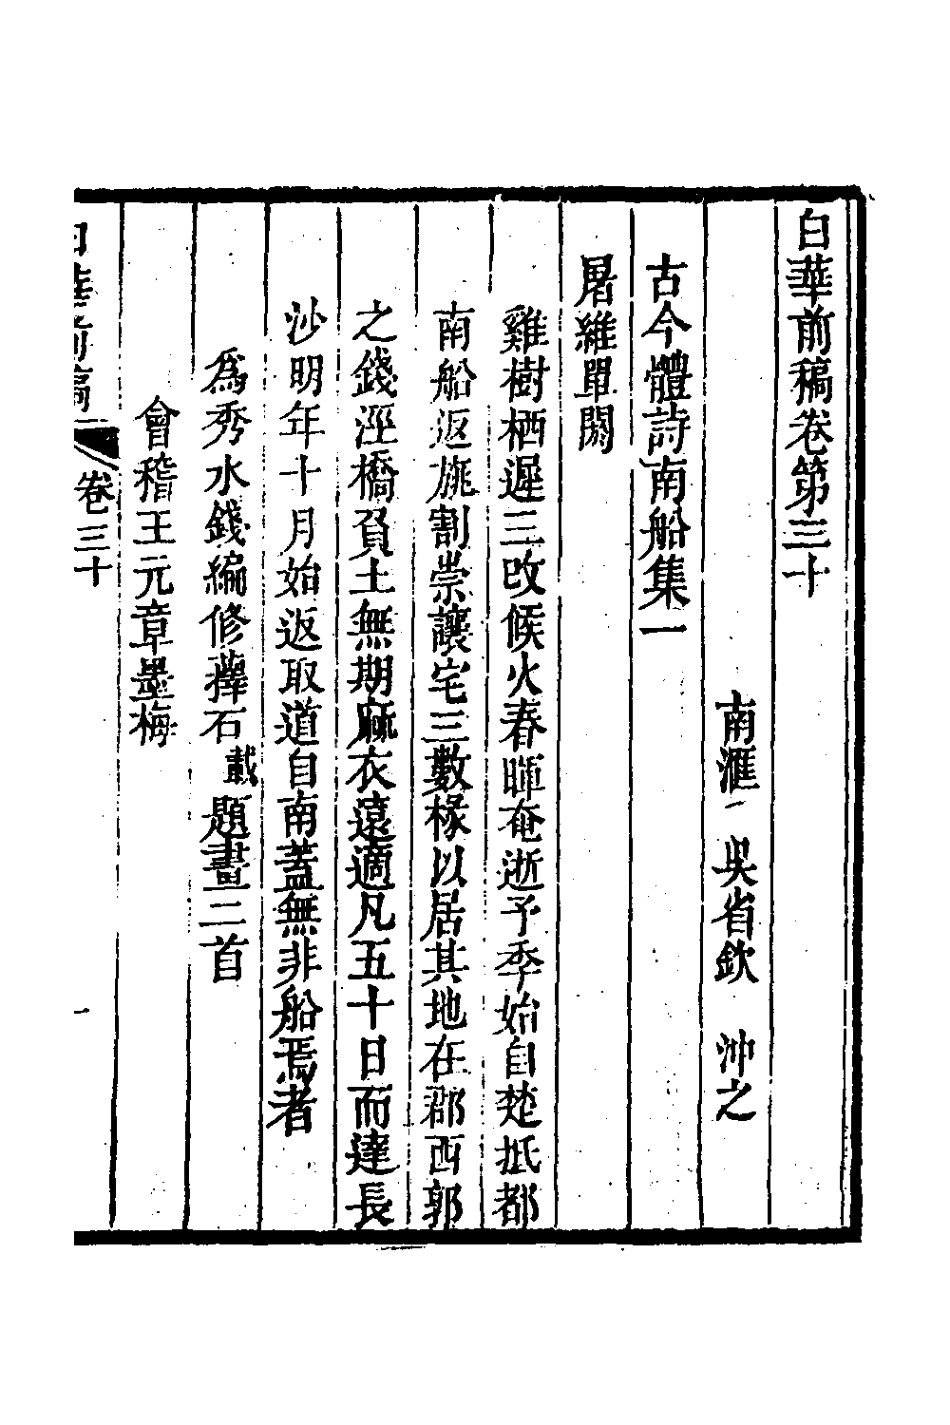 白華前稿卷第三十
南滙 吳省欽 沖之
古今體詩南船集一
屠維單閼
雞樹栖遲三改候火春暉奄逝予季始自楚抵都
南船返旐割崇讓宅三數椽以居其地在郡西郭
之錢涇橋負土無期麻衣遠適凡五十日而達長
沙明年十月始返取道自南蓋無非船焉者
爲秀水錢編修蘀石載題畫二首
會稽王元章墨梅
白華前稿 卷三十 一